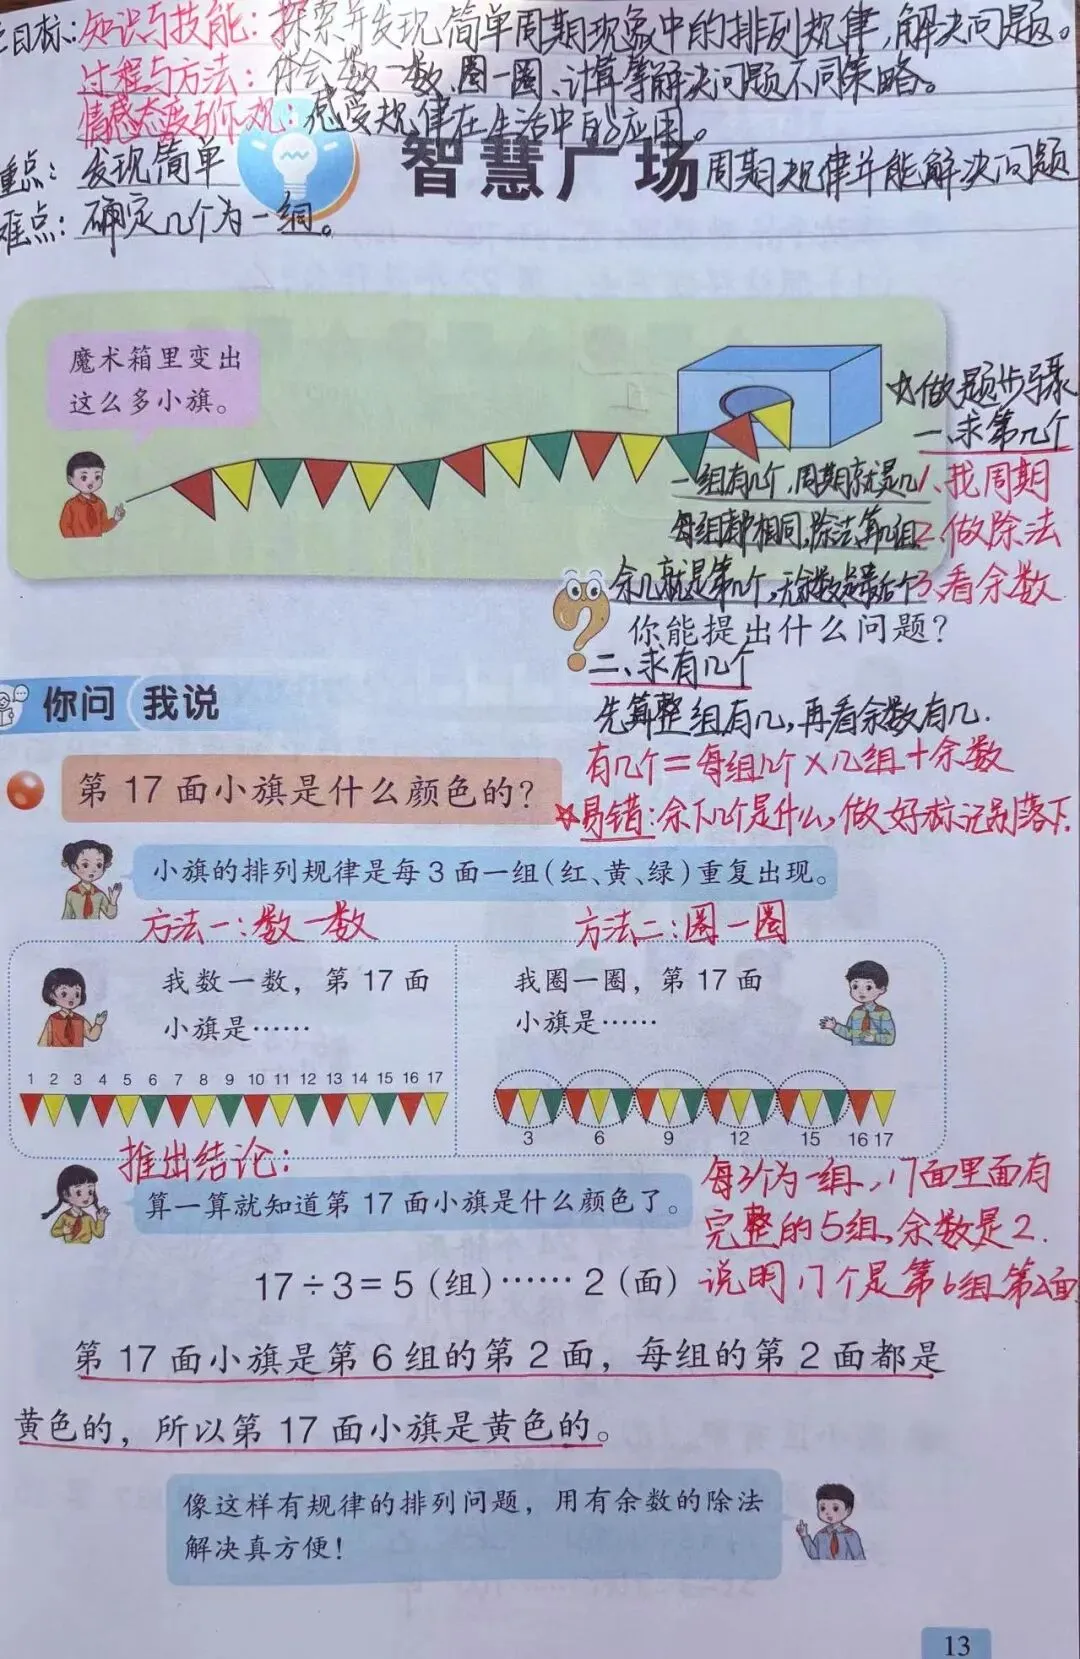 目标:知识与技能:探索并发现简单周期现象中的排列规律,解决问题。
过程与方法:体会数一数、圈一圈、计算等解决问题不同策略。
情感态度与价观:感受规律在生活中的应用。
重点:发现简单 周期规律并能解决问题
智慧广场
难点:确定几个为一组。
魔术箱里变出
这么多小旗。
☆做题步骤
一、求第几个
一组有几个,周期就是几 1、找周期
每组都相同,除法算几组 2、做除法
余几就是第几个,无余数是最后个 3、看余数
你能提出什么问题?
二、求有几个
先算整组有几,再看余数有几.
有几个=每组几个×几组+余数
☆易错:余下几个是什么,做好标记别落下.
你问 我说
第 17 面小旗是什么颜色的?
小旗的排列规律是每 3 面一组(红、黄、绿)重复出现。
方法一:数一数 方法二:圈一圈
我数一数,第 17 面
小旗是……
我圈一圈,第 17 面
小旗是……
1 2 3 4 5 6 7 8 9 10 11 12 13 14 15 16 17
3 6 9 12 15 16 17
推出结论:
算一算就知道第 17 面小旗是什么颜色了。
每3个为一组,17面里面有
完整的5组,余数是2.
说明17个是第6组第2面
17÷3=5(组)……2(面)
第 17 面小旗是第 6 组的第 2 面,每组的第 2 面都是
黄色的,所以第 17 面小旗是黄色的。
像这样有规律的排列问题,用有余数的除法
解决真方便!
13